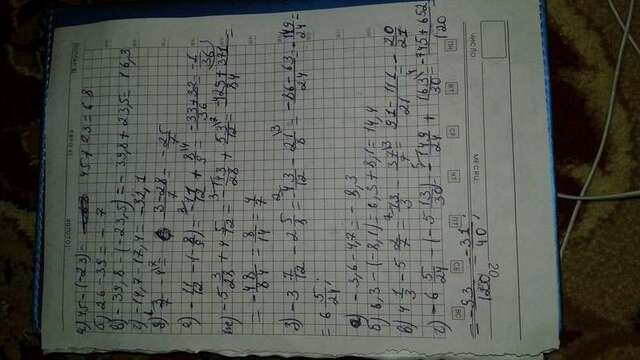 а) 45 - (-23) = 45 + 23 = 68
б) 26 - 33 = - 7
в) - 39,8 - (-23,5) = - 39,8 + 23,5 = 16,3
г) - 14,7 - 17,4 = - 32,1
д) 3/7 - 4 = 3-28/7 = -25/7
е) - 11/12 - (- 8/9) = - 11/12 + 8/9 = -33+32/36 = -1/36
ж) - 5 3/28 + 4 5/12 = - 143/28 + 53/12 = -429+371/84 =
= - 48/84 = 8/14 = 4/7
з) - 3 7/12 - 2 5/8 = - 43/12 - 21/8 = -86-63/24 = -149/24 =
= 6 5/24;
а) - 3,6 - 4,7 = - 8,3
б) 6,3 - (-8,1) = 6,3 + 8,1 = 14,4
в) 4 1/3 - 5 2/7 = 13/3 - 37/7 = 91-111/21 = - 20/21
г) - 6 5/24 - (- 5 13/30) = - 149/24 + 163/30 = -745+652/120
= - 93/120 = -31/40;
ВС СБ ПТ ЧТ СР ВТ ПН
20
МЕСЯЦ
ЧИСЛО